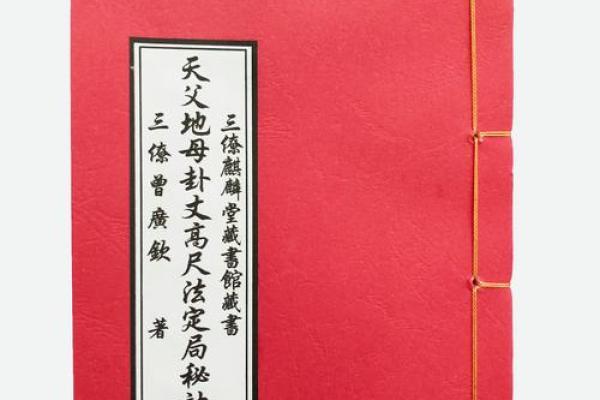 三僚麒麟堂藏書館藏書
天父地母卦丈高尺法定局秘
三僚曾廣欽 著